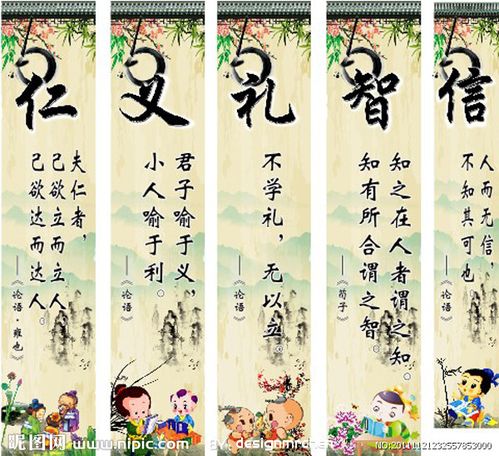 仁
夫仁者，
己欲立而立人
己欲达而达人。
——《论语·雍也》
义
君子喻于义，
小人喻于利。
——《论语》
礼
不学礼，无以立。
——《论语》
智
知之在人者谓之知。
知有所合谓之智。
——《荀子》
信
人而无信，
不知其可也。
——《论语》
昵图网 www.nipic.com
NO:20111121232557853000